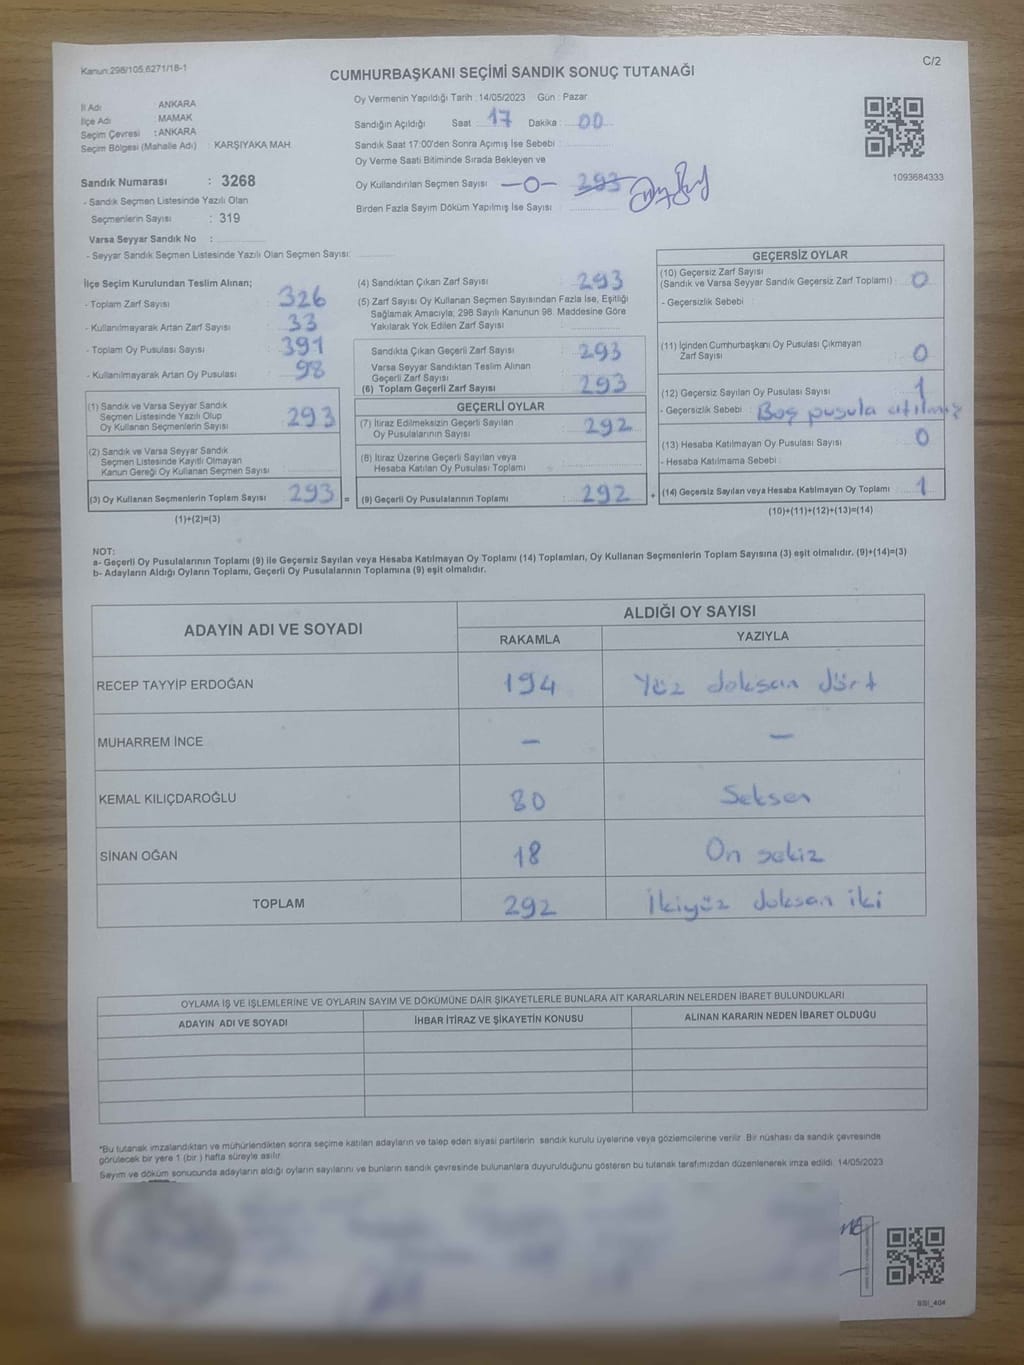 Kanun:298/105,6271/18-1
C/2
CUMHURBAŞKANI SEÇİMİ SANDIK SONUÇ TUTANAĞI
İl Adı : ANKARA
İlçe Adı : MAMAK
Seçim Çevresi : ANKARA
Seçim Bölgesi (Mahalle Adı) : KARŞIYAKA MAH.
Sandık Numarası : 3268
- Sandık Seçmen Listesinde Yazılı Olan
Seçmenlerin Sayısı : 319
Varsa Seyyar Sandık No :
- Seyyar Sandık Seçmen Listesinde Yazılı Olan Seçmen Sayısı:
Oy Vermenin Yapıldığı Tarih : 14/05/2023 Gün : Pazar
Sandığın Açıldığı Saat : 17 Dakika : 00
Sandık Saat 17:00'den Sonra Açımış İse Sebebi :
Oy Verme Saati Bitiminde Sırada Bekleyen ve
Oy Kullandırılan Seçmen Sayısı —0— 293
Birden Fazla Sayım Döküm Yapılmış İse Sayısı :
1093684333
İlçe Seçim Kurulundan Teslim Alınan;
- Toplam Zarf Sayısı : 326
- Kullanılmayarak Artan Zarf Sayısı : 33
- Toplam Oy Pusulası Sayısı : 391
- Kullanılmayarak Artan Oy Pusulası : 98
(1) Sandık ve Varsa Seyyar Sandık
Seçmen Listesinde Yazılı Olup
Oy Kullanan Seçmenlerin Sayısı : 293
(2) Sandık ve Varsa Seyyar Sandık
Seçmen Listesinde Kayıtlı Olmayan
Kanun Gereği Oy Kullanan Seçmen Sayısı :
(3) Oy Kullanan Seçmenlerin Toplam Sayısı : 293 =
(1)+(2)=(3)
(4) Sandıktan Çıkan Zarf Sayısı : 293
(5) Zarf Sayısı Oy Kullanan Seçmen Sayısından Fazla İse, Eşitliği
Sağlamak Amacıyla; 298 Sayılı Kanunun 98. Maddesine Göre
Yakılarak Yok Edilen Zarf Sayısı :
Sandıkta Çıkan Geçerli Zarf Sayısı : 293
Varsa Seyyar Sandıktan Teslim Alınan
Geçerli Zarf Sayısı :
(6) Toplam Geçerli Zarf Sayısı : 293
GEÇERLİ OYLAR
(7) İtiraz Edilmeksizin Geçerli Sayılan
Oy Pusulalarının Sayısı : 292
(8) İtiraz Üzerine Geçerli Sayılan veya
Hesaba Katılan Oy Pusulası Toplamı :
(9) Geçerli Oy Pusulalarının Toplamı : 292 +
GEÇERSİZ OYLAR
(10) Geçersiz Zarf Sayısı
(Sandık ve Varsa Seyyar Sandık Geçersiz Zarf Toplamı) : 0
- Geçersizlik Sebebi :
(11) İçinden Cumhurbaşkanı Oy Pusulası Çıkmayan
Zarf Sayısı : 0
(12) Geçersiz Sayılan Oy Pusulası Sayısı : 1
- Geçersizlik Sebebi : Boş pusula atılmış
(13) Hesaba Katılmayan Oy Pusulası Sayısı : 0
- Hesaba Katılmama Sebebi :
(14) Geçersiz Sayılan veya Hesaba Katılmayan Oy Toplamı : 1
(10)+(11)+(12)+(13)=(14)
NOT:
a- Geçerli Oy Pusulalarının Toplamı (9) ile Geçersiz Sayılan veya Hesaba Katılmayan Oy Toplamı (14) Toplamları, Oy Kullanan Seçmenlerin Toplam Sayısına (3) eşit olmalıdır. (9)+(14)=(3)
b- Adayların Aldığı Oyların Toplamı, Geçerli Oy Pusulalarının Toplamına (9) eşit olmalıdır.
ADAYIN ADI VE SOYADI
ALDIĞI OY SAYISI
RAKAMLA YAZIYLA
RECEP TAYYİP ERDOĞAN 194 Yüz doksan dört
MUHARREM İNCE — —
KEMAL KILIÇDAROĞLU 80 Seksen
SİNAN OĞAN 18 On sekiz
TOPLAM 292 İkiyüz doksan iki
OYLAMA İŞ VE İŞLEMLERİNE VE OYLARIN SAYIM VE DÖKÜMÜNE DAİR ŞİKAYETLERLE BUNLARA AİT KARARLARIN NELERDEN İBARET BULUNDUKLARI
ADAYIN ADI VE SOYADI İHBAR İTİRAZ VE ŞİKAYETİN KONUSU ALINAN KARARIN NEDEN İBARET OLDUĞU
*Bu tutanak imzalandıktan ve mühürlendikten sonra seçime katılan adayların ve talep eden siyasi partilerin sandık kurulu üyelerine veya gözlemcilerine verilir. Bir nüshası da sandık çevresinde
görülecek bir yere 1 (bir ) hafta süreyle asılır.
Sayım ve döküm sonucunda adayların aldığı oyların sayılarını ve bunların sandık çevresinde bulunanlara duyurulduğunu gösteren bu tutanak tarafımızdan düzenlenerek imza edildi. 14/05/2023
BSI_404